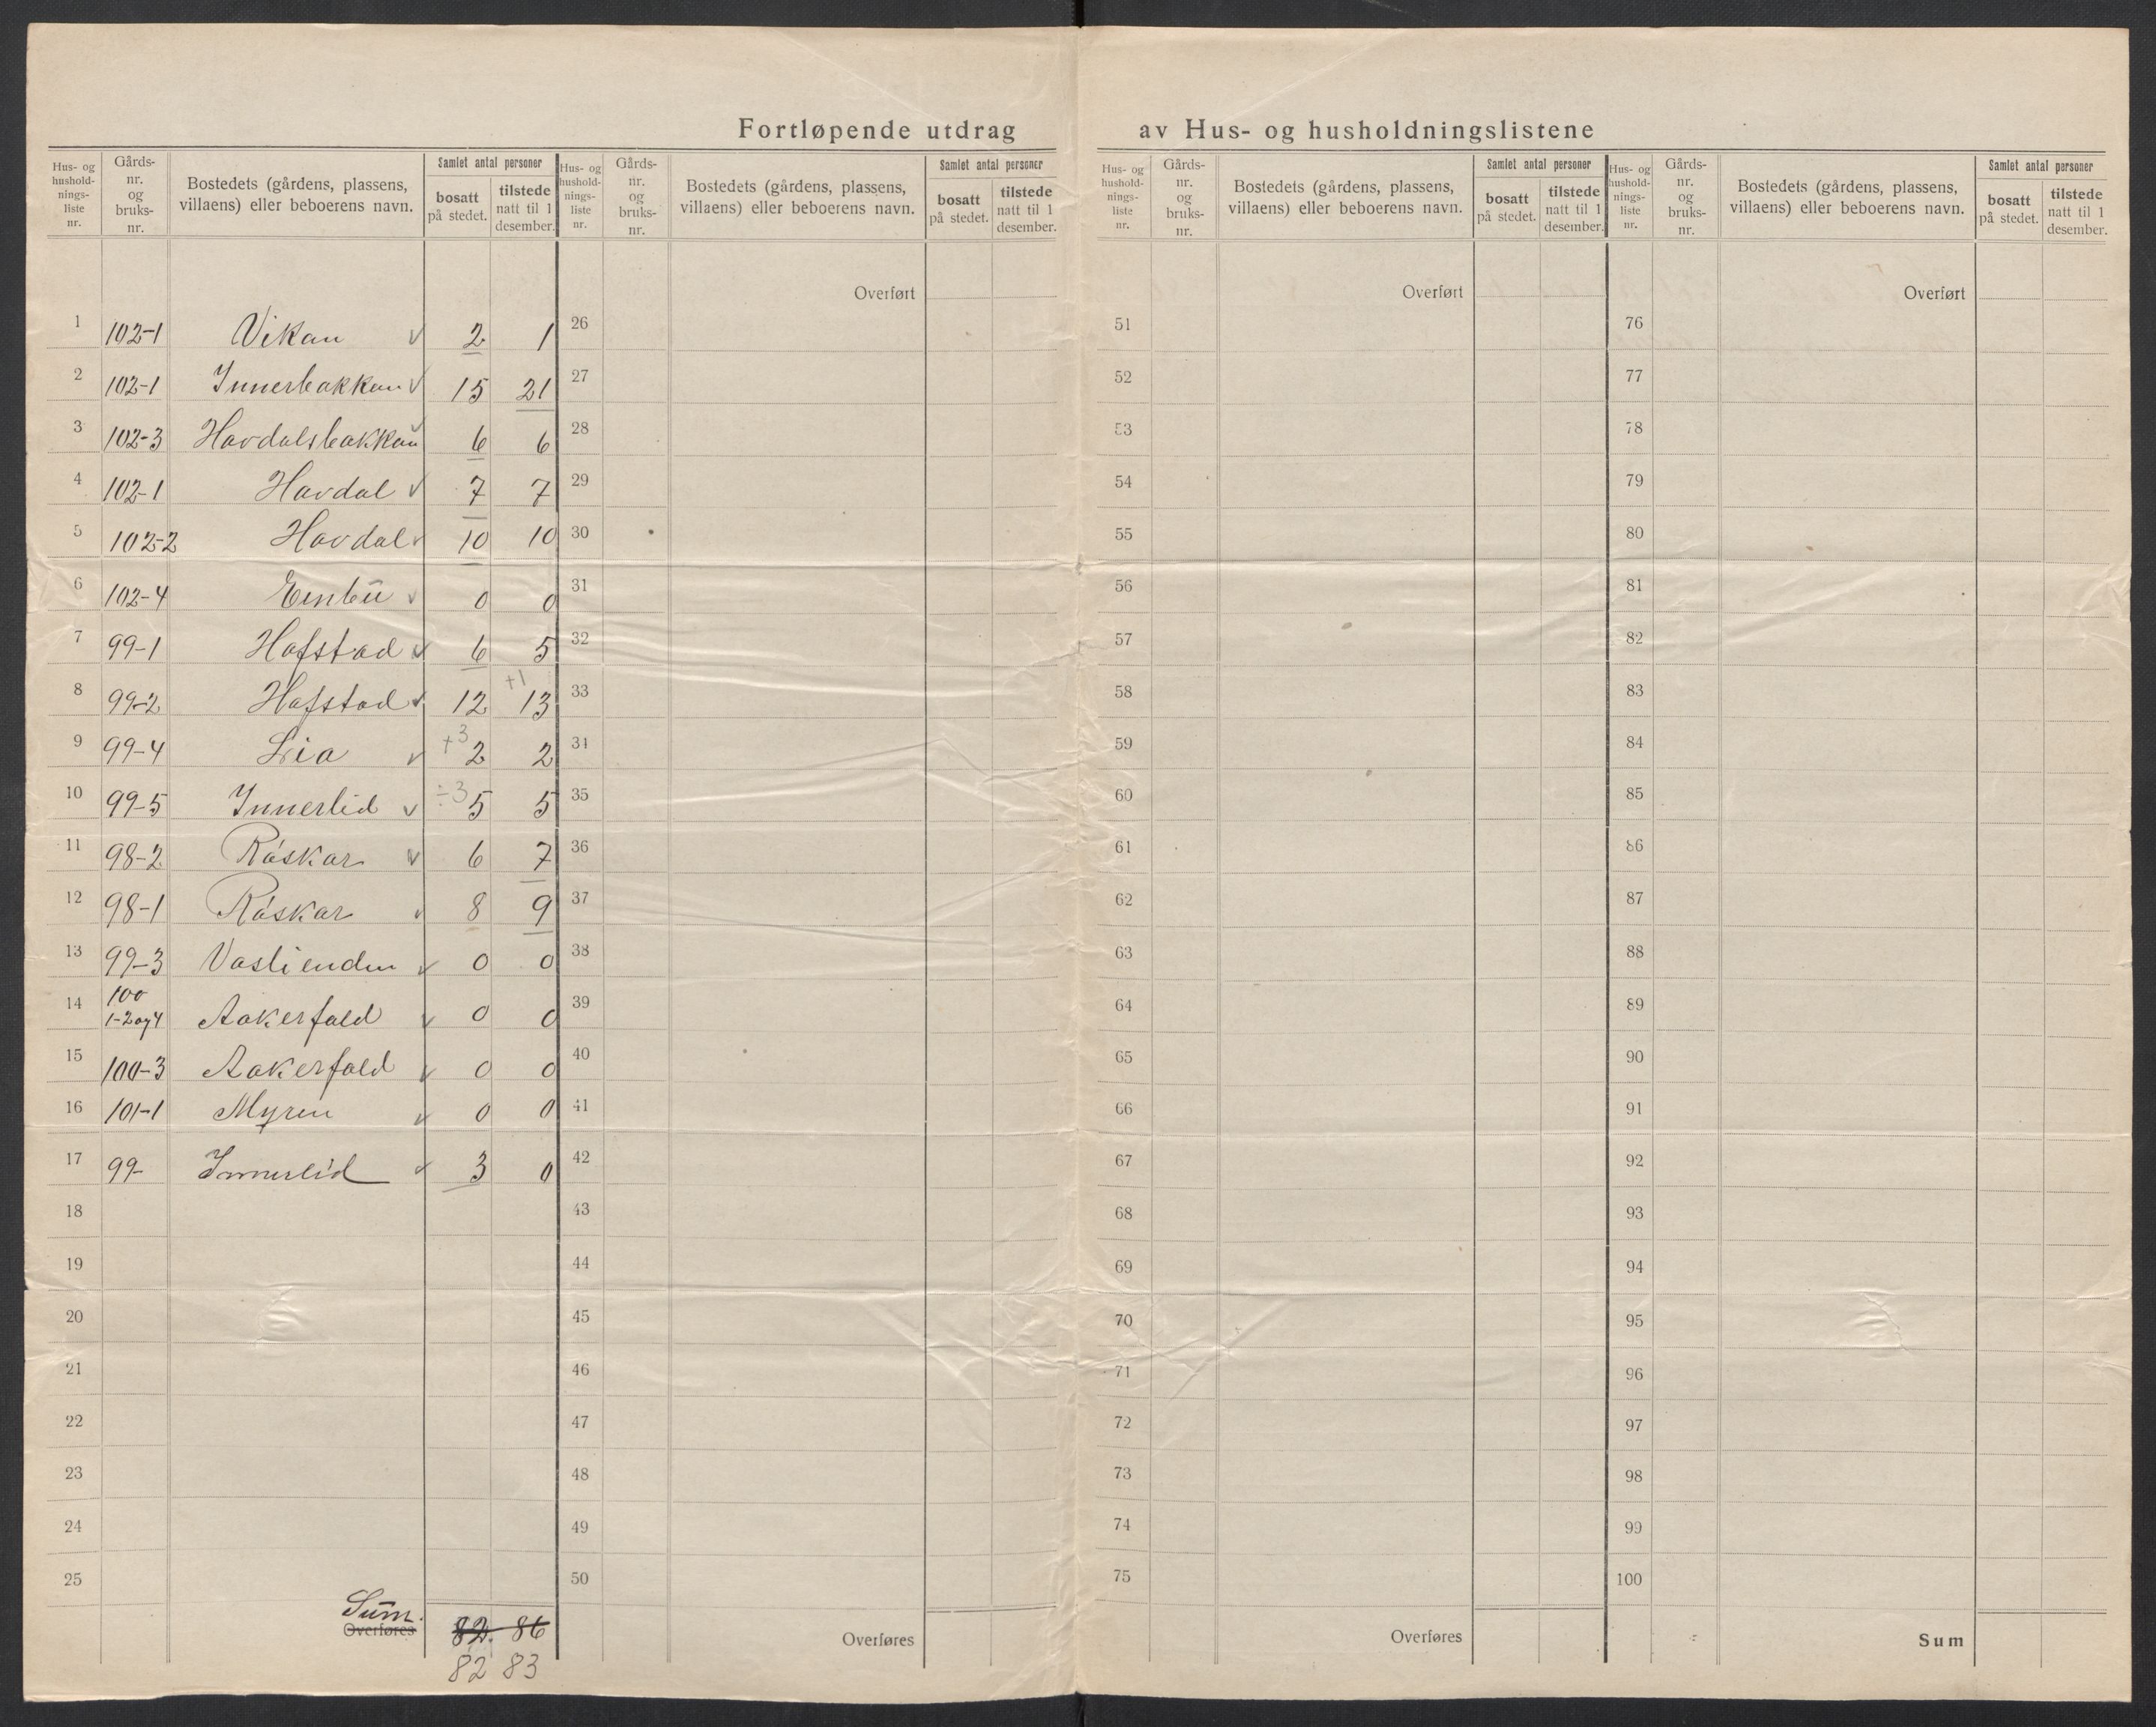 Fortløpende utdrag av Hus- og husholdningslistene
Hus- og husholdnings-liste nr. Gårds-nr. og bruks-nr. Bostedets (gårdens, plassens, villaens) eller beboerens navn. Samlet antal personer bosatt på stedet. tilstede natt til 1 desember.
Hus- og husholdnings-liste nr. Gårds-nr. og bruks-nr. Bostedets (gårdens, plassens, villaens) eller beboerens navn. Samlet antal personer bosatt på stedet. tilstede natt til 1 desember.
Hus- og husholdnings-liste nr. Gårds-nr. og bruks-nr. Bostedets (gårdens, plassens, villaens) eller beboerens navn. Samlet antal personer bosatt på stedet. tilstede natt til 1 desember.
Hus- og husholdnings-liste nr. Gårds-nr. og bruks-nr. Bostedets (gårdens, plassens, villaens) eller beboerens navn. Samlet antal personer bosatt på stedet. tilstede natt til 1 desember.
Overført Overført Overført
1 102-1 Vikan 2 1 26 51 76
2 102-1 Innerbakkan 15 21 27 52 77
3 102-3 Havdalsbakkan 6 6 28 53 78
4 102-1 Havdal 7 7 29 54 79
5 102-2 Havdal 10 10 30 55 80
6 102-4 Einbu 0 0 31 56 81
7 99-1 Hafstad 6 5 32 57 82
8 99-2 Hafstad 12 +1 13 33 58 83
9 99-4 Lia +3 2 2 34 59 84
10 99-5 Innerlid ÷3 5 5 35 60 85
11 98-2 Råskar 6 7 36 61 86
12 98-1 Råskar 8 9 37 62 87
13 99-3 Vaslienden 0 0 38 63 88
14 100 1-2og4 Aakerfald 0 0 39 64 89
15 100-3 Aakerfald 0 0 40 65 90
16 101-1 Myren 0 0 41 66 91
17 99- Innerlid 3 0 42 67 92
18 43 68 93
19 44 69 94
20 45 70 95
21 46 71 96
22 47 72 97
23 48 73 98
24 49 74 99
25 50 75 100
Sum.
Overføres 82. 86 Overføres Overføres Sum
82 83